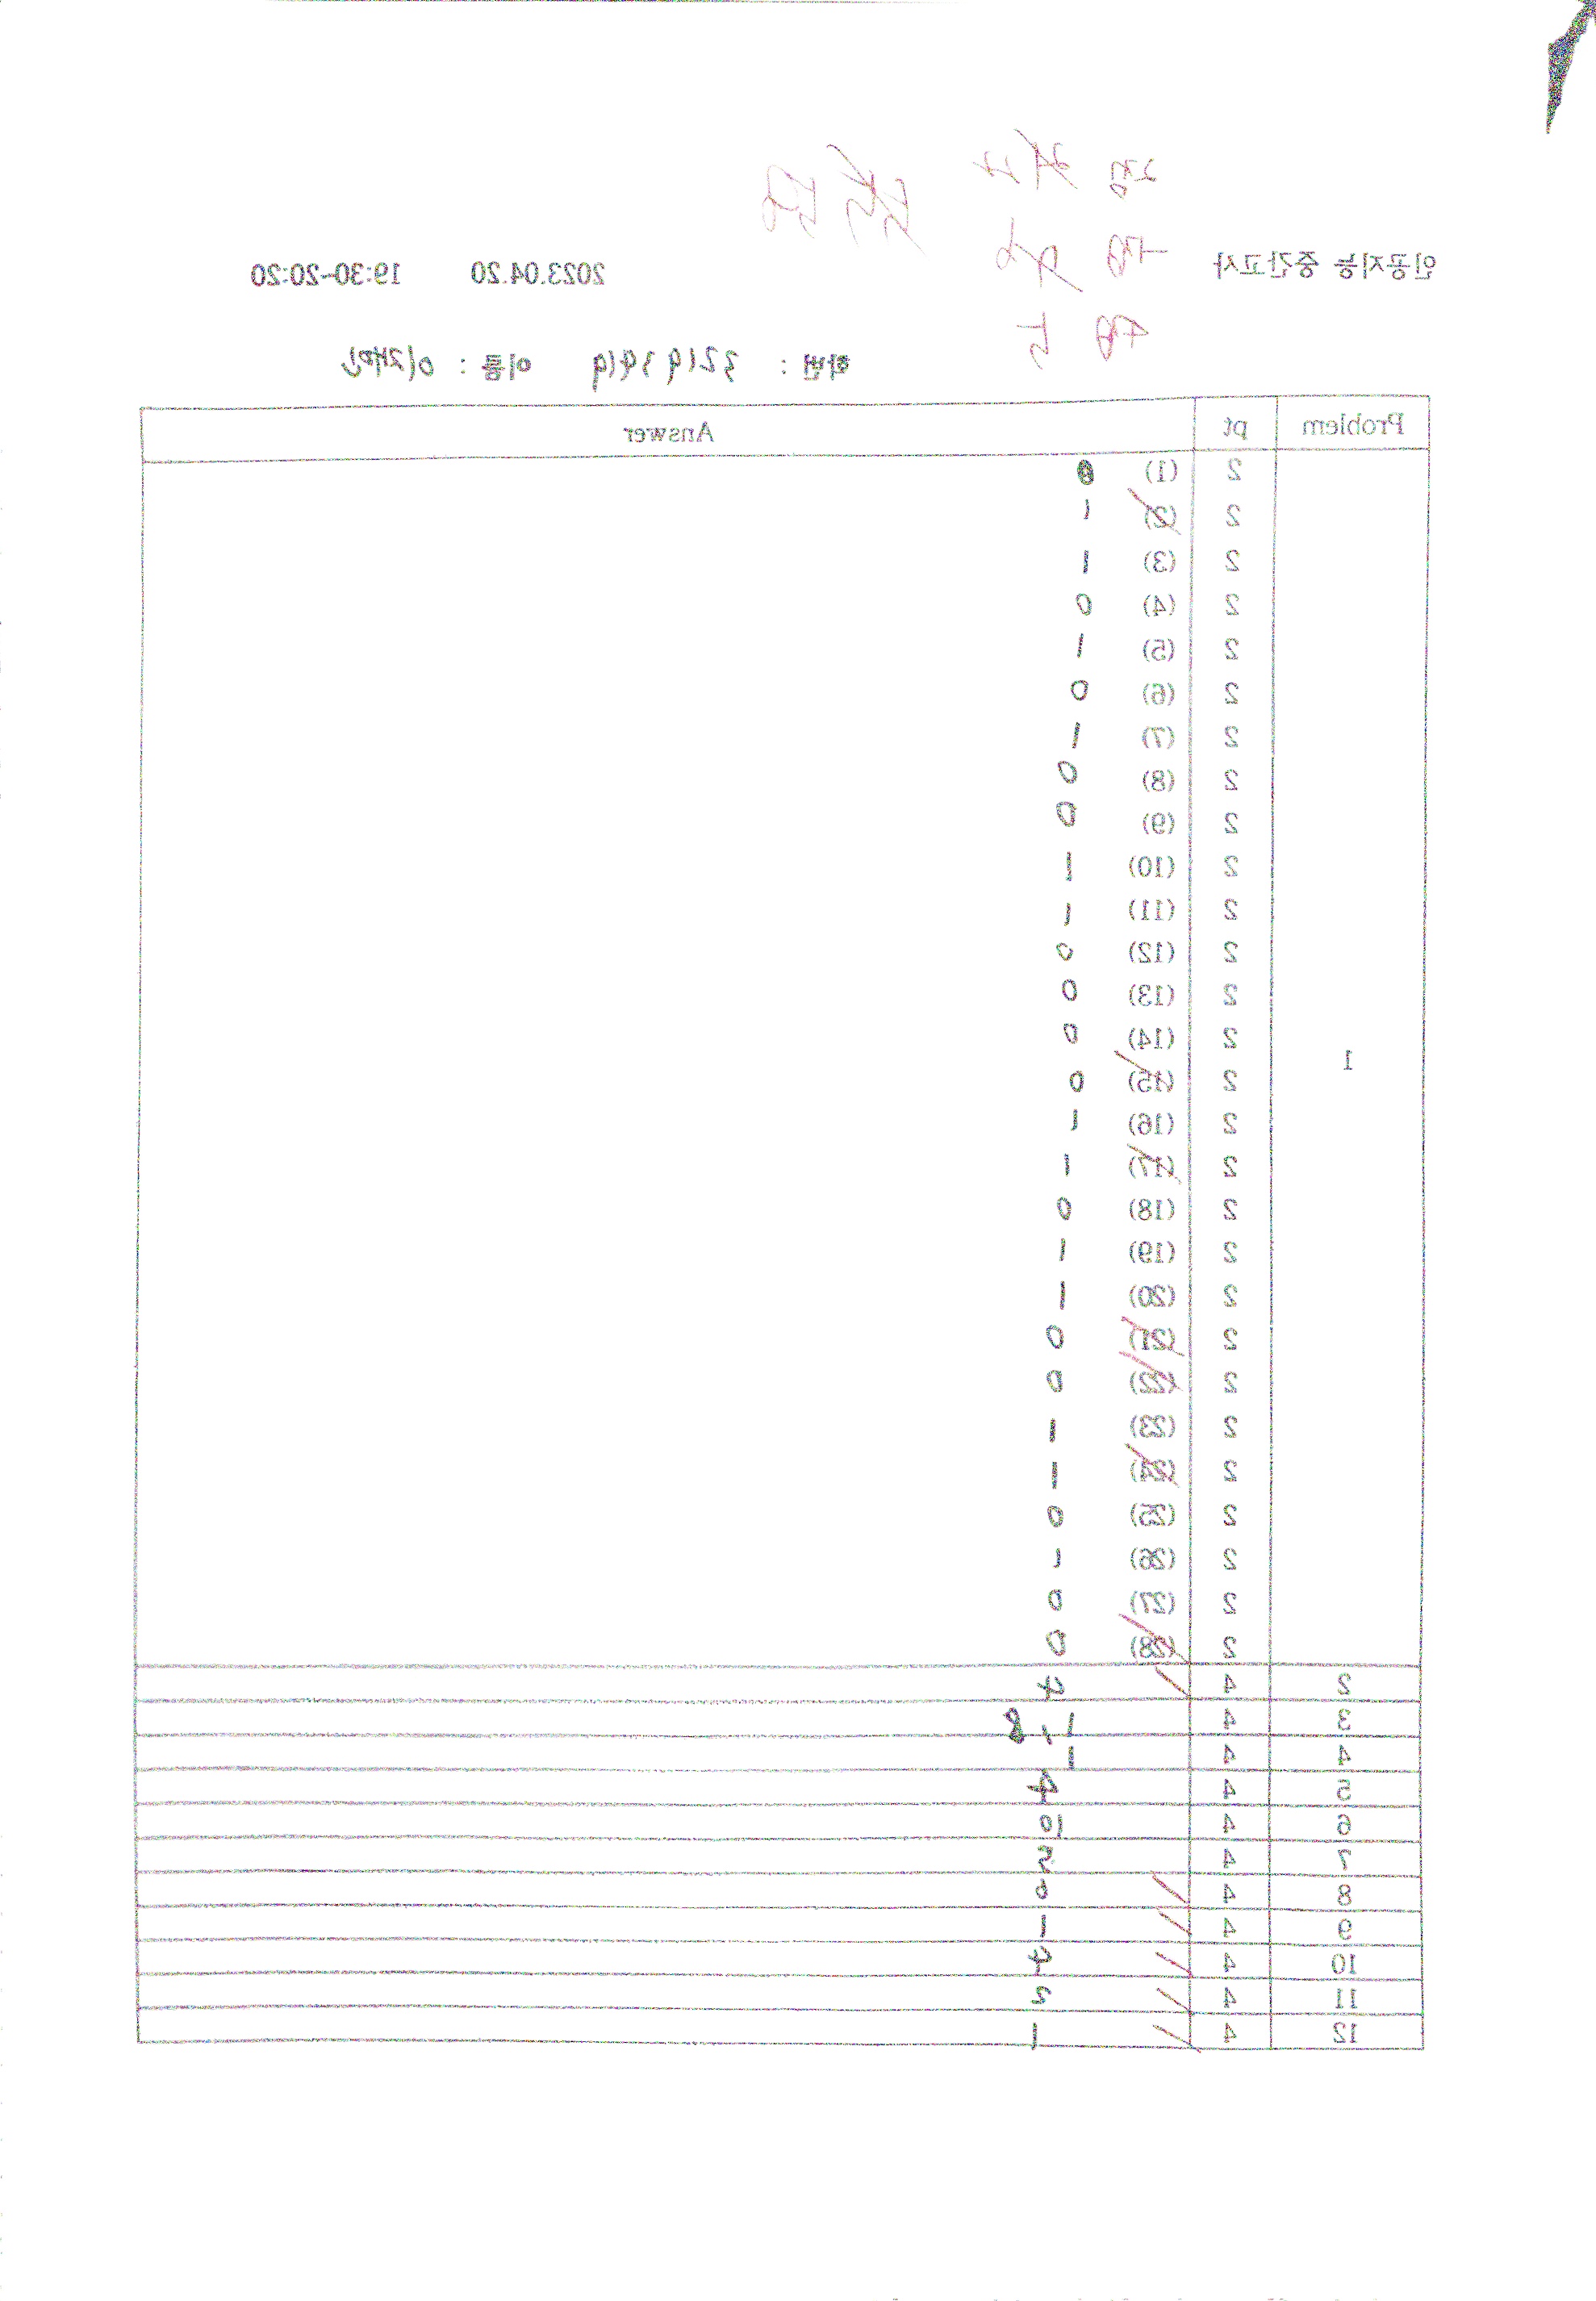 인공지능 중간고사 2023.04.20 19:30-20:20
학번 : 이름 :
Problem pt Answer
2 (1) 0
2 (2) 1
2 (3) 1
2 (4) 0
2 (5) 1
2 (6) 0
2 (7) 1
2 (8) 0
2 (9) 0
2 (10) 1
2 (11) 1
2 (12) 0
2 (13) 0
2 (14) 0
1
2 (15) 0
2 (16) 1
2 (17) 1
2 (18) 0
2 (19) 1
2 (20) 1
2 (21) 0
2 (22) 0
2 (23) 1
2 (24) 1
2 (25) 0
2 (26) 1
2 (27) 0
2 (28) 0
2 4 4
3 4 1, 8
4 4 1
5 4 4
6 4 10
7 4
8 4
9 4 1
10 4 4
11 4
12 4 1